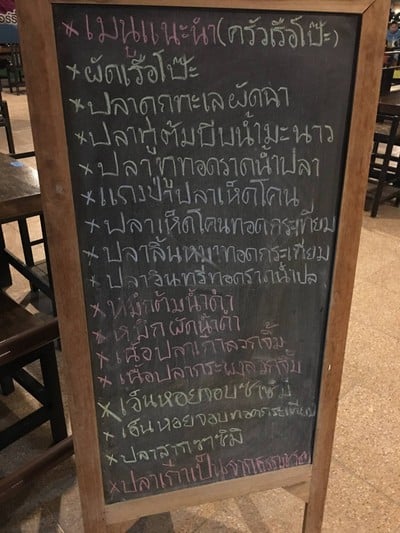 ×เมนูแนะนำ(ครัวเรือโป๊ะ)
×ผัดเรือโป๊ะ
×ปลาดุกทะเลผัดฉ่า
×ปลาทูต้มบีบน้ำมะนาว
×ปลาทูทอดราดน้ำปลา
×แกงป่าปลาเห็ดโคน
×ปลาเห็ดโคนทอดกระเทียม
×ปลาลิ้นหมาทอดกระเทียม
×ปลาอินทรีทอดราดน้ำปลา
×หมึกต้มน้ำดำ
×หมึกผัดน้ำดำ
×เนื้อปลาเก๋าลวกจิ้ม
×เนื้อปลากระพงลวกจิ้ม
×เอ็นหอยจอบซาซิมิ
×เอ็นหอยจอบทอดกระเทียม
×ปลาสากซาซิมิ
×ปลาเก๋าเป็น